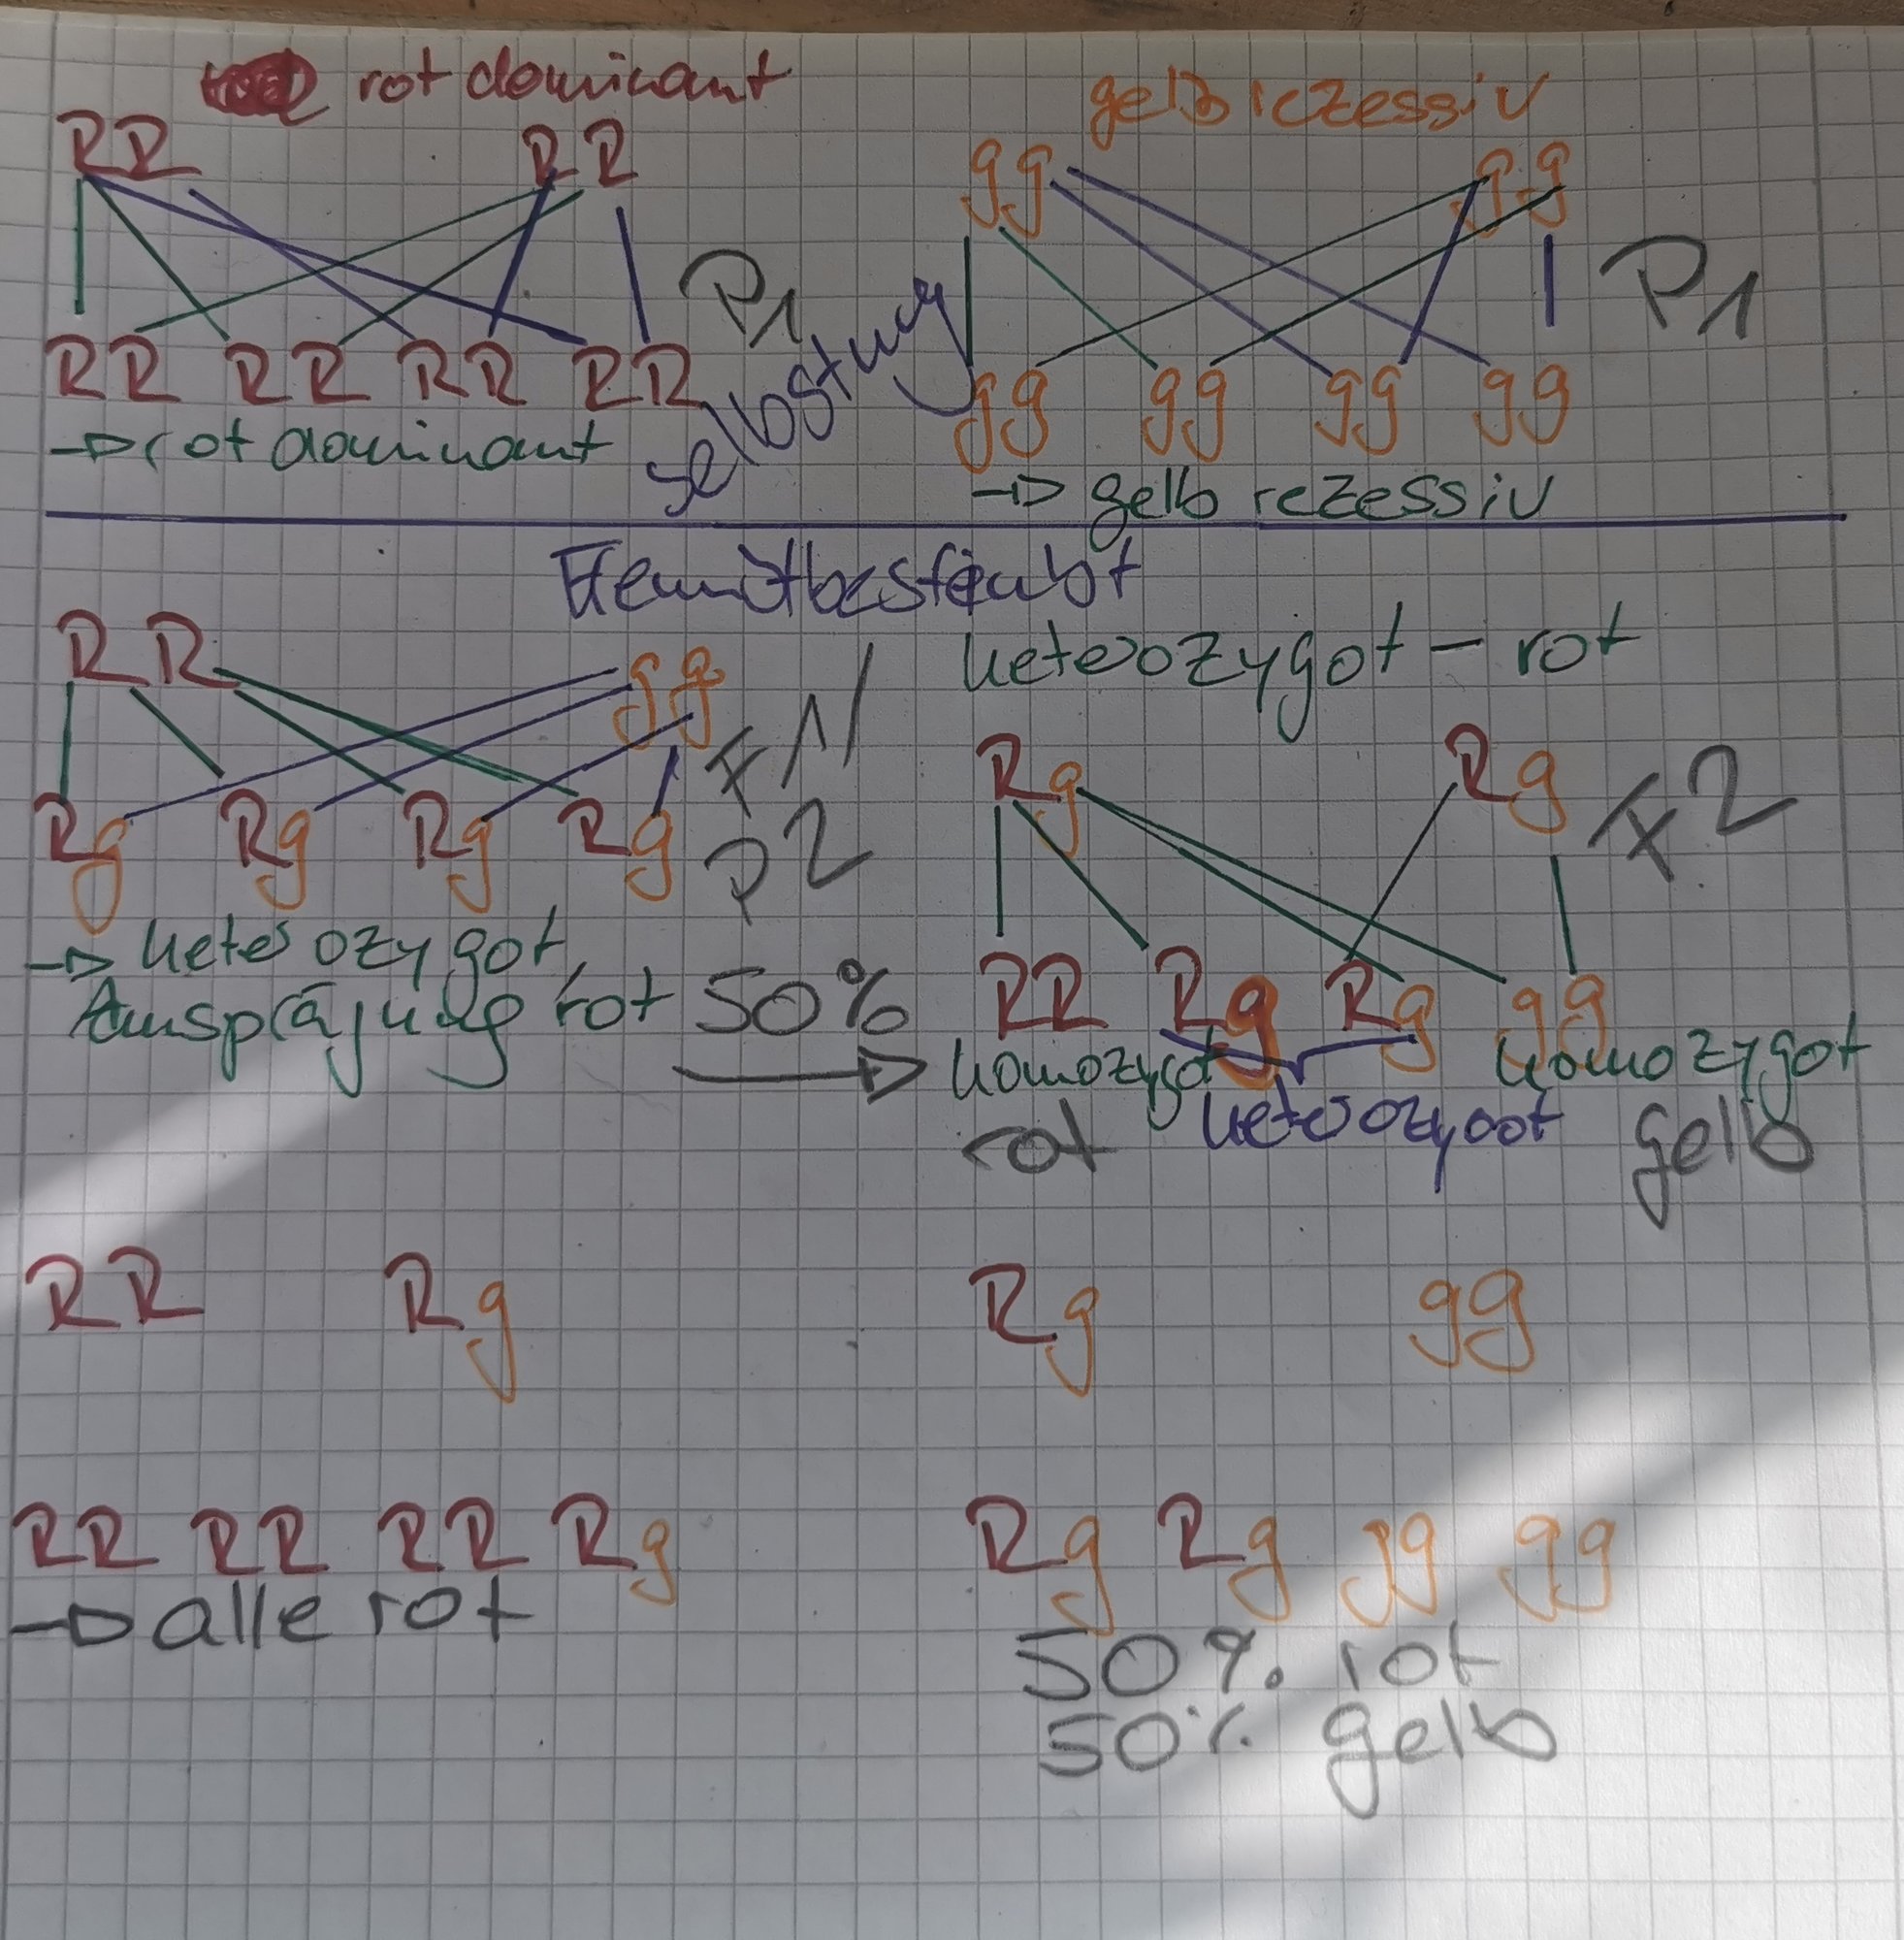 rot dominant
gelb rezessiv
RR RR
gg gg
P1
P1
selbstung
RR RR RR RR
gg gg gg gg
→ rot dominant
→ gelb rezessiv
RR gg
heterozygot - rot
F1/
P2
Rg Rg
F2
Rg Rg Rg Rg
→ heterozygot,
Ausprägung rot
50%
RR Rg Rg gg
homozygot homozygot
rot heterozygot gelb
RR Rg
Rg gg
RR RR RR Rg
→ alle rot
Rg Rg gg gg
50% rot
50% gelb